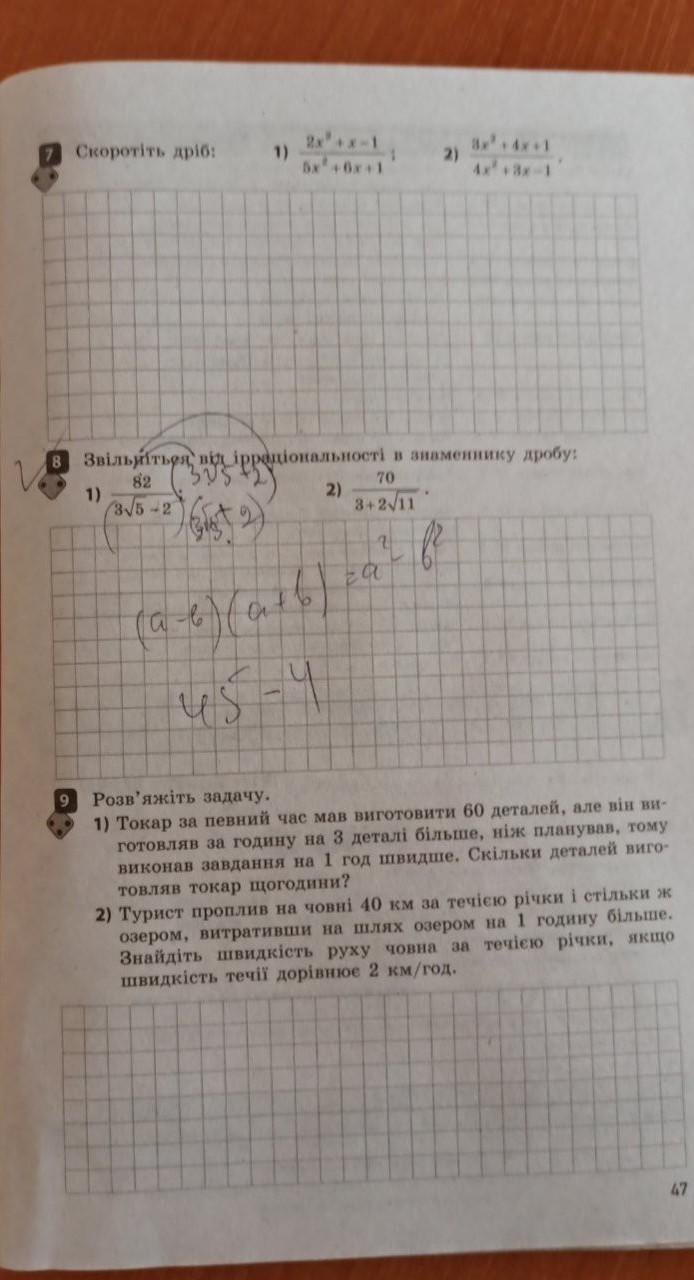 7 Скоротіть дріб: 1) (2x² + x − 1)/(5x² + 6x + 1); 2) (3x² + 4x + 1)/(4x² + 3x − 1).
8 Звільніться від ірраціональності в знаменнику дробу:
1) 82/(3√5 − 2); (3√5 + 2) 2) 70/(3 + 2√11).
(a − b)(a + b) = a² − b²
45 − 4
9 Розв’яжіть задачу.
1) Токар за певний час мав виготовити 60 деталей, але він ви-
готовляв за годину на 3 деталі більше, ніж планував, тому
виконав завдання на 1 год швидше. Скільки деталей виго-
товляв токар щогодини?
2) Турист проплив на човні 40 км за течією річки і стільки ж
озером, витративши на шлях озером на 1 годину більше.
Знайдіть швидкість руху човна за течією річки, якщо
швидкість течії дорівнює 2 км/год.
47